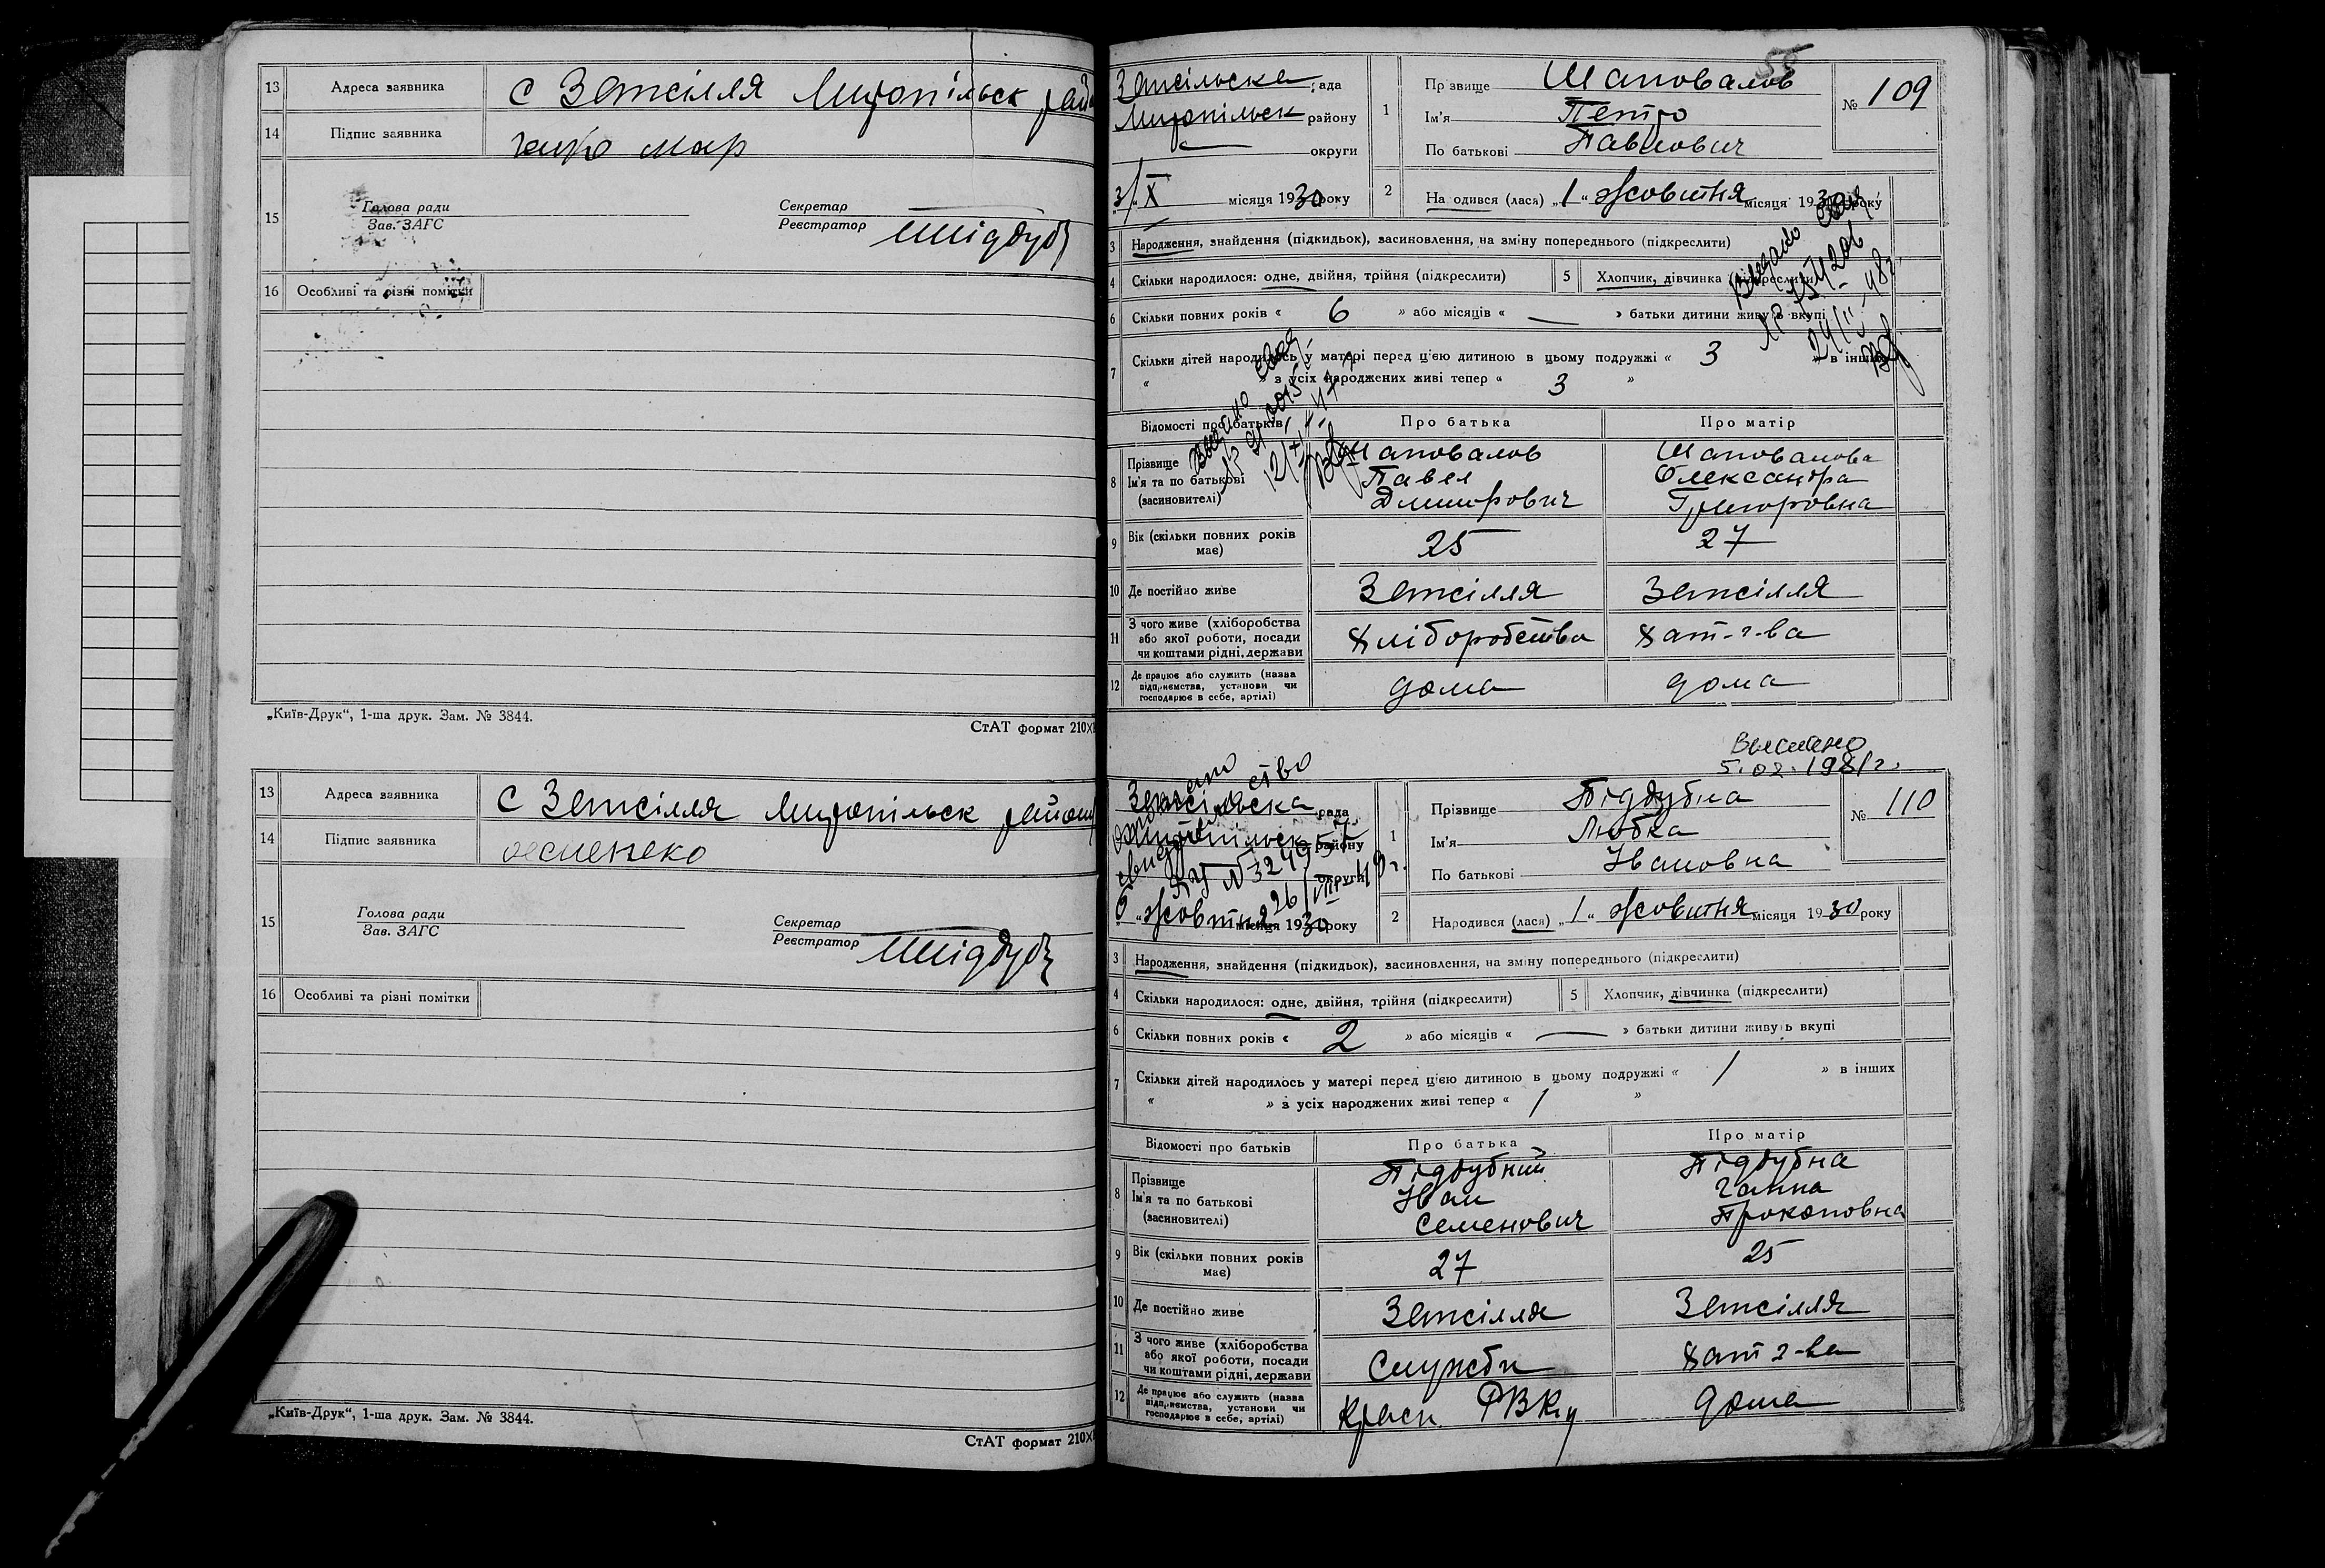 13 Адреса заявника с Запсілля Миропільськ район
14 Підпис заявника
15 Голова ради
Зав. ЗАГС
Секретар
Реєстратор
16 Особливі та різні помітки
„Київ-Друк“, 1-ша друк. Зам. № 3844.
СтАТ формат 210X
13 Адреса заявника с Запсілля Миропільськ району
14 Підпис заявника
15 Голова ради
Зав. ЗАГС
Секретар
Реєстратор
16 Особливі та різні помітки
„Київ-Друк“, 1-ша друк. Зам. № 3844.
СтАТ формат 210X
55
Запсільська рада
Миропільськ району
округи
3/X місяця 1930 року
1 Прізвище Шаповалов
Ім'я Петро
По батькові Павлович
№ 109
2 Народився (лася) „1“ жовтня місяця 1930 року
3 Народження, знайдення (підкидьок), засиновлення, на зміну попереднього (підкреслити)
4 Скільки народилося: одне, двійня, трійня (підкреслити)
5 Хлопчик, дівчинка (підкреслити)
6 Скільки повних років « 6 » або місяців « — » батьки дитини живуть вкупі
7 Скільки дітей народилось у матері перед цією дитиною в цьому подружжі « 3 » в інших
« » з усіх народжених живі тепер « 3 »
Відомості про батьків Про батька Про матір
8 Прізвище Ім'я та по батькові (засиновителі)
Шаповалов Павел Дмитрович
Шаповалова Олександра Григоровна
9 Вік (скільки повних років має) 25 27
10 Де постійно живе Запсілля Запсілля
11 З чого живе (хліборобства або якої роботи, посади чи коштами рідні, держави Хліборобства хат-г-ва
12 Де працює або служить (назва підприємства, установи чи господарює в себе, артілі) дома дома
5.02.1981г.
Запсільська рада
Миропільськ району
округи
6 „жовтня місяця 1930 року
1 Прізвище Піддубна
Ім'я Любка
По батькові Івановна
№ 110
2 Народився (лася) „1“ жовтня місяця 1930 року
3 Народження, знайдення (підкидьок), засиновлення, на зміну попереднього (підкреслити)
4 Скільки народилося: одне, двійня, трійня (підкреслити)
5 Хлопчик, дівчинка (підкреслити)
6 Скільки повних років « 2 » або місяців « — » батьки дитини живуть вкупі
7 Скільки дітей народилось у матері перед цією дитиною в цьому подружжі « 1 » в інших
« » з усіх народжених живі тепер « 1 »
Відомості про батьків Про батька Про матір
8 Прізвище Ім'я та по батькові (засиновителі)
Піддубний Іван Семенович
Піддубна Ганна Прокоповна
9 Вік (скільки повних років має) 27 25
10 Де постійно живе Запсілля Запсілля
11 З чого живе (хліборобства або якої роботи, посади чи коштами рідні, держави Служби хат г-ва
12 Де працює або служить (назва підприємства, установи чи господарює в себе, артілі) дома